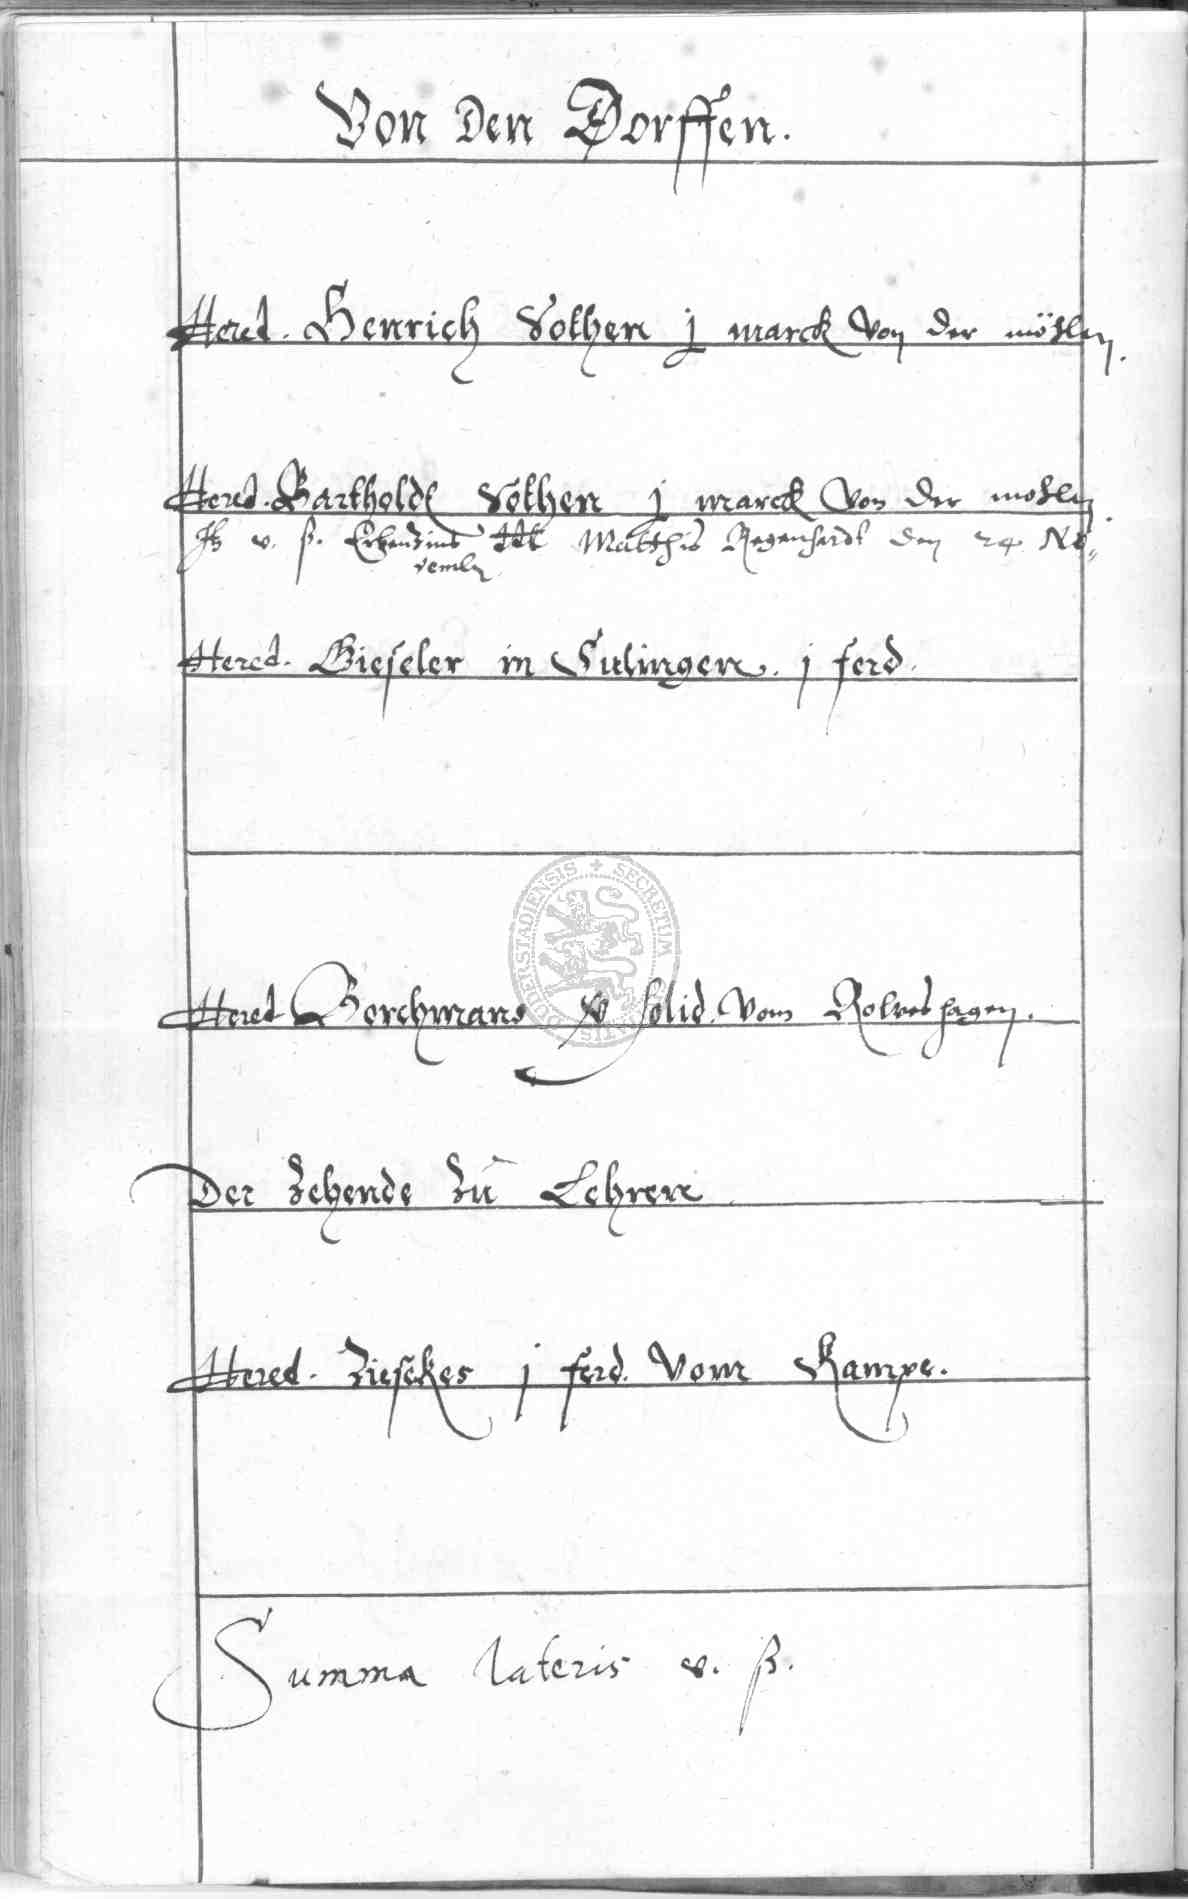 Von Den Dorffen.
Hered. Henrich Vothen j marck Von der möhlen.
Hered. Bartholdt Vothen j marck Von der mohlen.
v. ß. Erbenzins Matthis Regenhardt den 24 No=
vemb
Hered. Gieseler in Sulingen. j ferd.
Hered. Borchmans xv solid. Vom Rolveshagen.
Der Zehende Zu Lehren
Hered. Zieskes j ferd. Vom Kampe.
Summa lateris v. ß.
SECRETUM DUDERSTADIENSIS